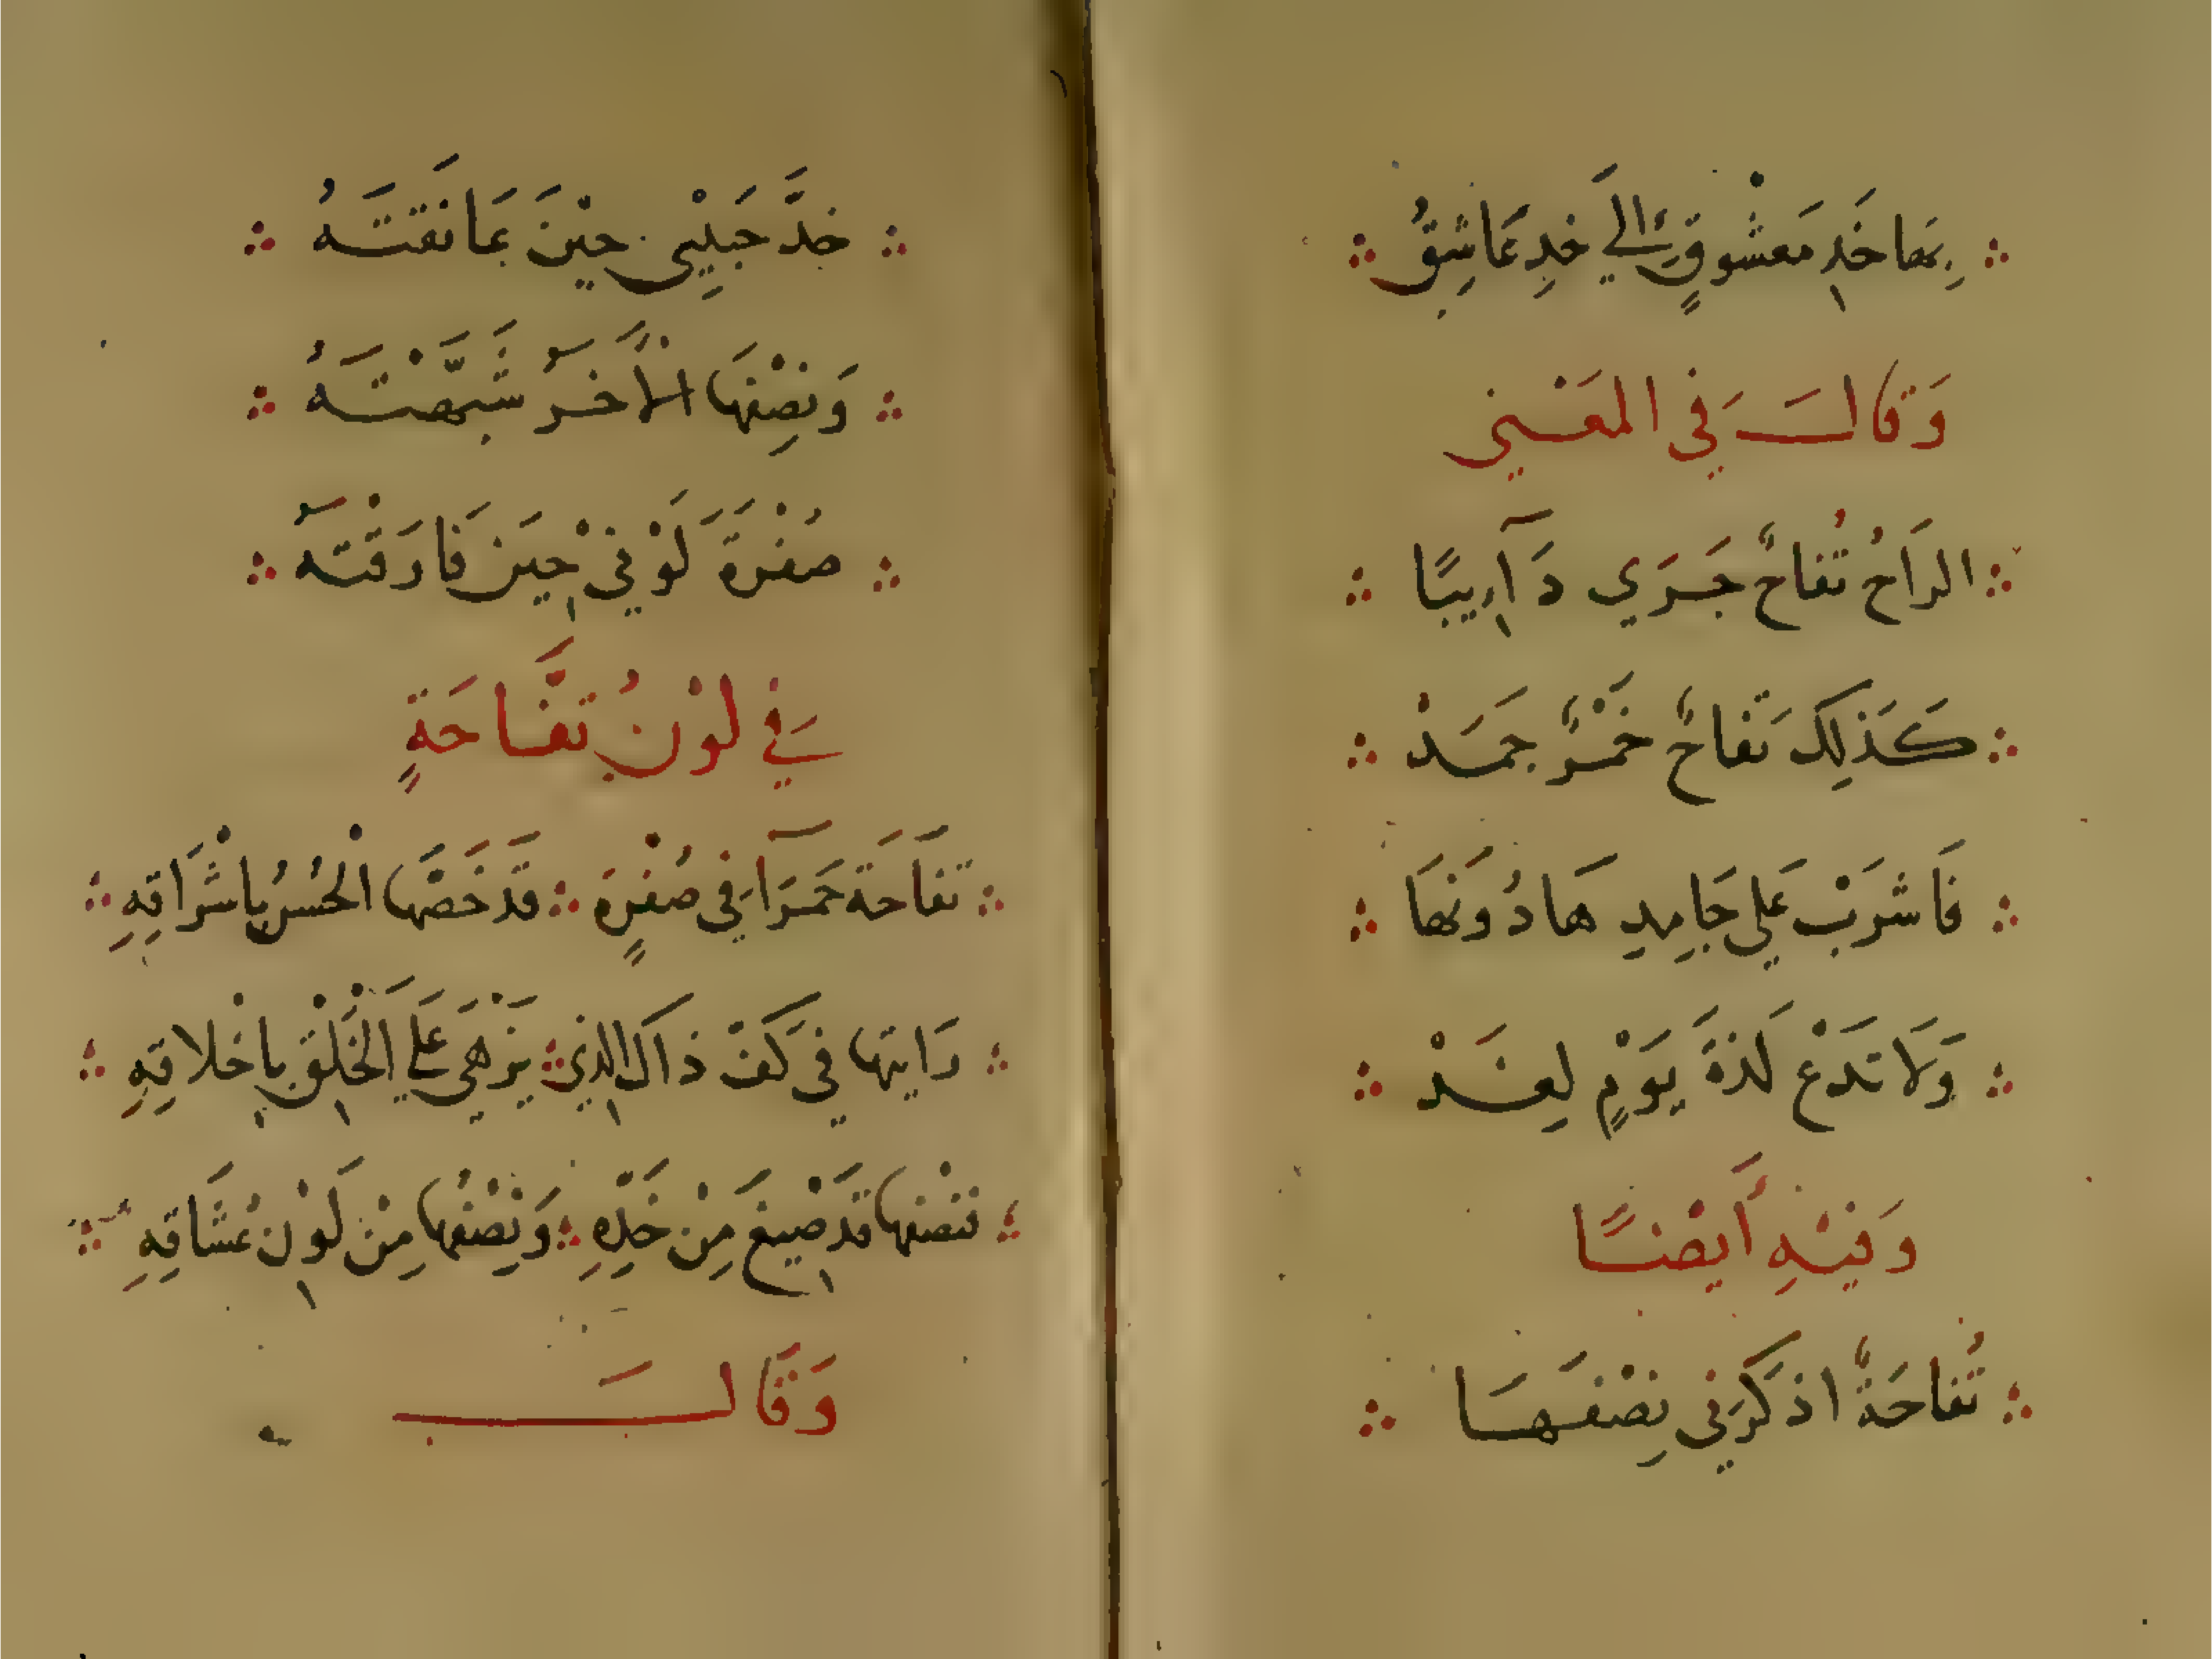 بِهَا خَدِ مَعْشُوقٍ إِلَي خَدِ عَاشِقُ
وَقَالَ فِي المَعْنِي
الرَاحُ تُفاحٌ جَرَي دَآيِبًا
كَذَلِكَ تَفاحٌ خَمْرٌ جَمَدْ
فَاشرَبْ عَلي جَامِدِ هَا دُونَهَا
وَلَا تدَعْ لَذةَ يَوْمٍ لِغَدْ
وَفِيْهِ أَيْضًا
تُفاحَةٌ اذكَرَنِي نِصْفَهَا
خدَّ حَبِيْبِي حِيْنَ عَانَقتَهُ
وَنِصْفهَا الأَخَرَ شَبَّهْتَهُ
صُفْرَةَ لَوْنِيْ حِيَن فَارَقْتَهُ
فِي لَوْنُ تفَّاحَةٍ
تفَاحَة حَمرَآ فِي صُفْرٍة قَد خَصَّهَا الْحُسْنُ بِاشْرَاقِهِ
رَايتها فِي كَفَ ذاكَ الذِي يَزْهَي عَلَي الْخَلْقِ بِاخْلاقِهِ
نصْفها قَد صْيغَ مِنْ خَدِّهِ وَنِصْفُها مِنْ لَوْنِ عُشَاقِهِ
وَقَالَ